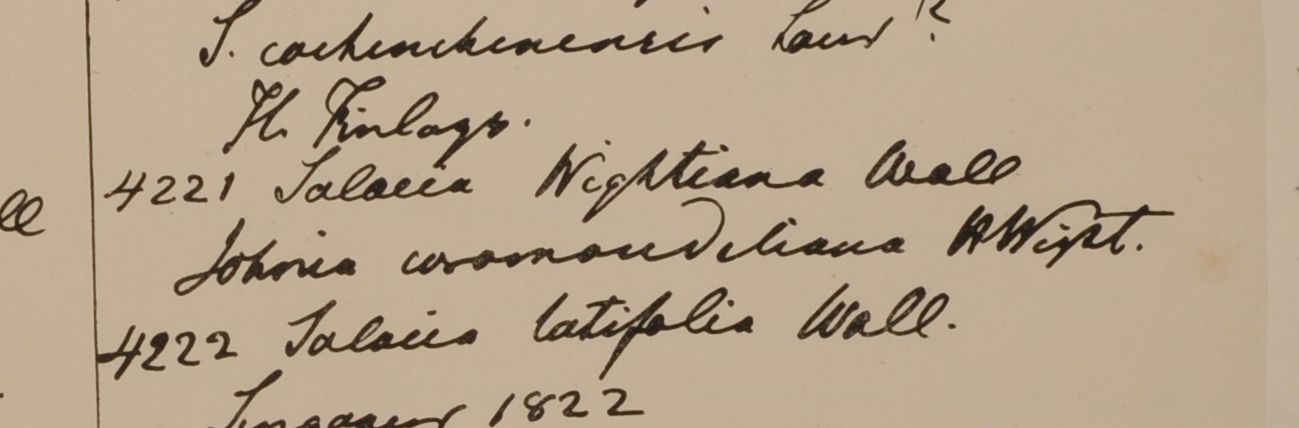 S. cochinchinensis Lour?
H. Finlays.
4221 Salacia Wightiana Wall
ll
Johnia coromandeliana H Wight.
4222 Salacia latifolia Wall.
Singapur 1822